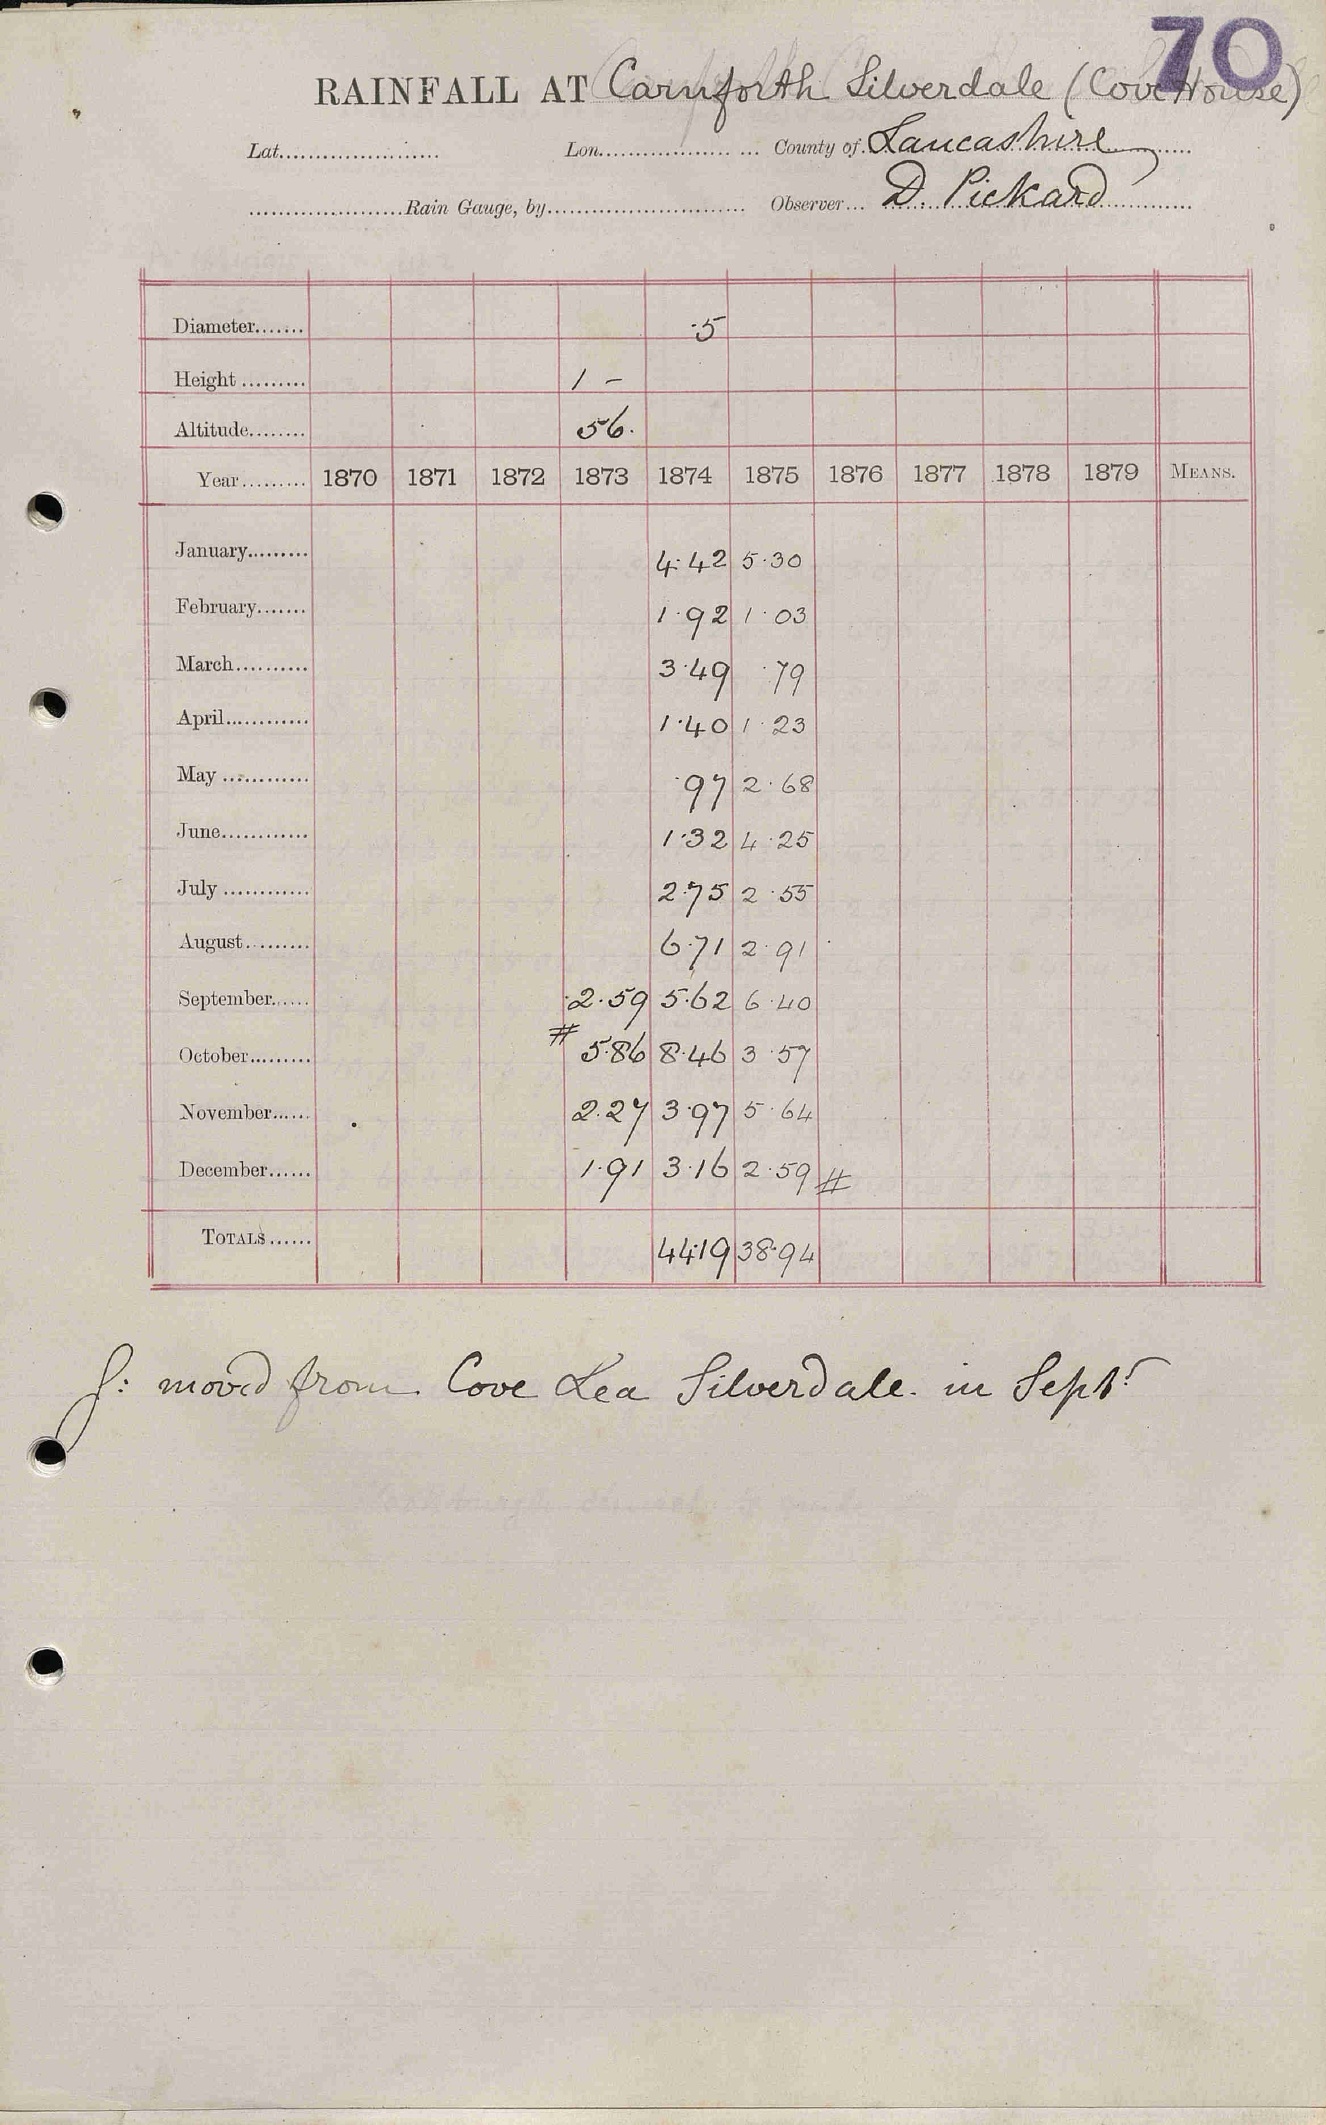 70
RAINFALL AT Carnforth Silverdale (Cove House)
Lat...................... Lon................... ... County of. Lancashire
......................Rain Gauge, by............................ Observer... D. Pickard
Diameter....... ·5
Height ......... 1 -
Altitude........ 56.
Year......... 1870 1871 1872 1873 1874 1875 1876 1877 1878 1879 MEANS.
January......... 4·42 5·30
February....... 1·92 1·03
March.......... 3·49 ·79
April............ 1·40 1·23
May ............ ·97 2·68
June............ 1·32 4·25
July ............ 2·75 2·55
August......... 6·71 2·91
September...... 2·59 5·62 6·40
October......... # 5·86 8·46 3·57
November...... 2·27 3·97 5·64
December...... 1·91 3·16 2·59 #
TOTALS...... 44·19 38·94
moved from Cove Lea Silverdale. in Septr